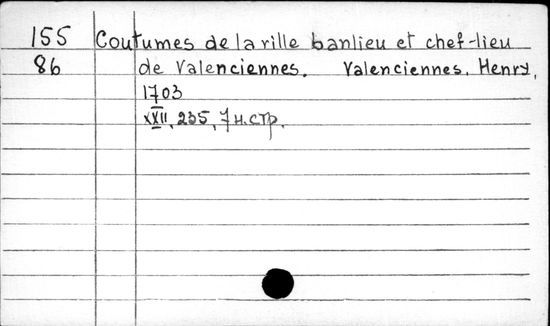 155 Coutumes de la ville banlieu et chef-lieu
86 de Valenciennes. Valenciennes, Henry,
1703
XXII, 235, 7 н.стр.